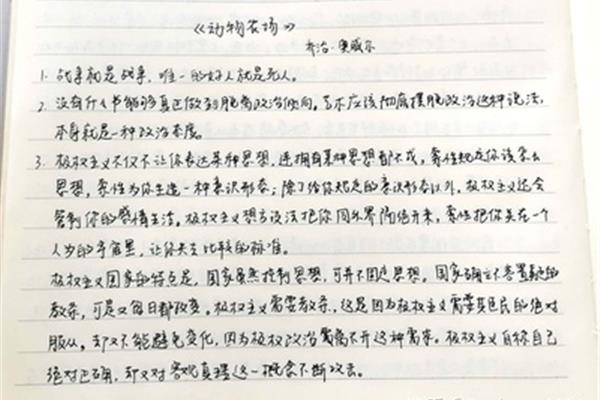 《动物农场》
乔治·奥威尔
1. 战争就是战争,唯一的好人就是死人。
2. 没有什么书能够真正做到脱离政治倾向。艺术应该彻底摆脱政治这种说法,
本身就是一种政治态度。
3. 极权主义不仅不让你表达某种思想,连拥有某种思想都不成,索性规定你该怎么
思想,索性为你生造一种意识形态;除了给你规定的意识形态以外,极权主义还会
管制你的感情生活。极权主义想方设法把你同外界隔绝开来,索性把你关在一个
人为的宇宙里,让你失去比较的标准。
极权主义国家的特点是,国家虽然控制思想,可并不固定思想。国家确立不容置疑的
教条,可是又每日都改变。极权主义需要教条,这是因为极权主义需要其臣民的绝对
服从。却又不能避免变化,因为极权政治离不开这种需求。极权主义自称自己
绝对正确,却又对客观真理这一概念不断攻击。